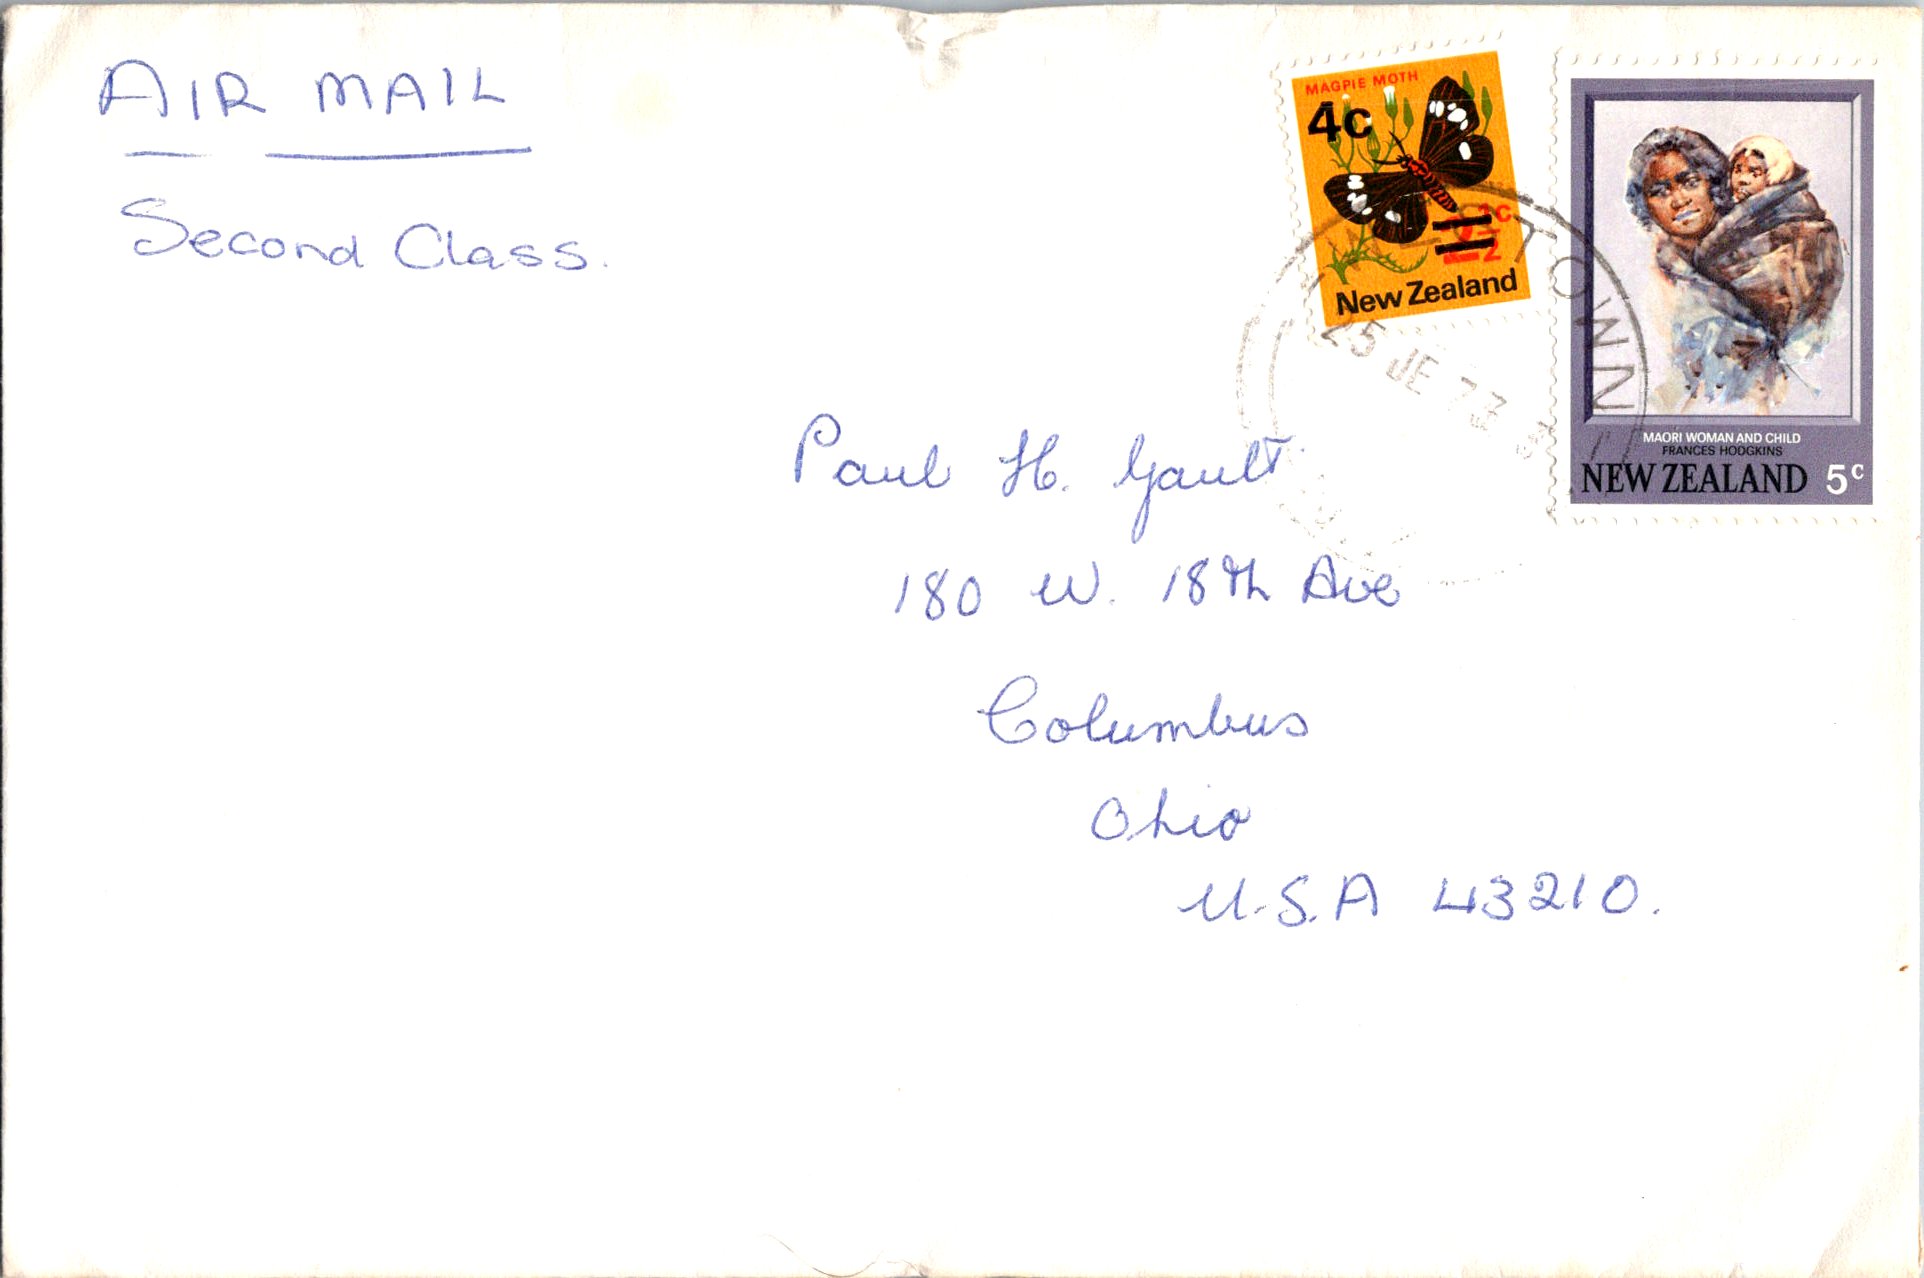 AIR MAIL
Second Class.
MAGPIE MOTH
4c
New Zealand
MAORI WOMAN AND CHILD
FRANCES HODGKINS
NEW ZEALAND 5c
TOWN
25 JE 73
Paul H. Gault
180 W. 18th Ave
Columbus
Ohio
U.S.A 43210.